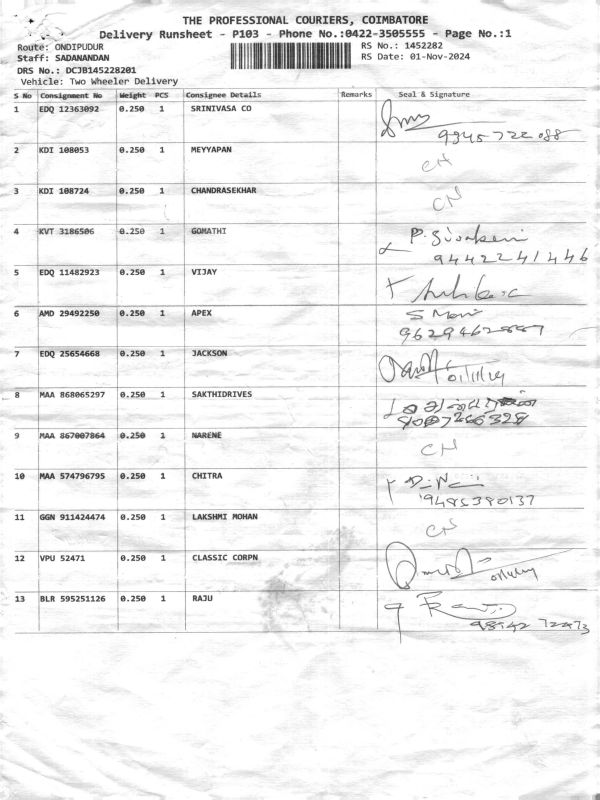 THE PROFESSIONAL COURIERS, COIMBATORE
Delivery Runsheet - P103 - Phone No.:0422-3505555 - Page No.:1
Route: ONDIPUDUR RS No.: 1452282
Staff: SADANANDAN RS Date: 01-Nov-2024
DRS No.: DCJB145228201
Vehicle: Two Wheeler Delivery
S No Consignment No Weight PCS Consignee Details Remarks Seal & Signature
1 EDQ 12363092 0.250 1 SRINIVASA CO
9345722088
2 KDI 108053 0.250 1 MEYYAPAN CN
3 KDI 108724 0.250 1 CHANDRASEKHAR CN
4 KVT 3186506 0.250 1 GOMATHI
9442241446
5 EDQ 11482923 0.250 1 VIJAY
6 AMD 29492250 0.250 1 APEX S Mani
7 EDQ 25654668 0.250 1 JACKSON 01/11/24
8 MAA 868065297 0.250 1 SAKTHIDRIVES
9 MAA 867007864 0.250 1 NARENE CN
10 MAA 574796795 0.250 1 CHITRA
9485390137
11 GGN 911424474 0.250 1 LAKSHMI MOHAN CN
12 VPU 52471 0.250 1 CLASSIC CORPN
13 BLR 595251126 0.250 1 RAJU